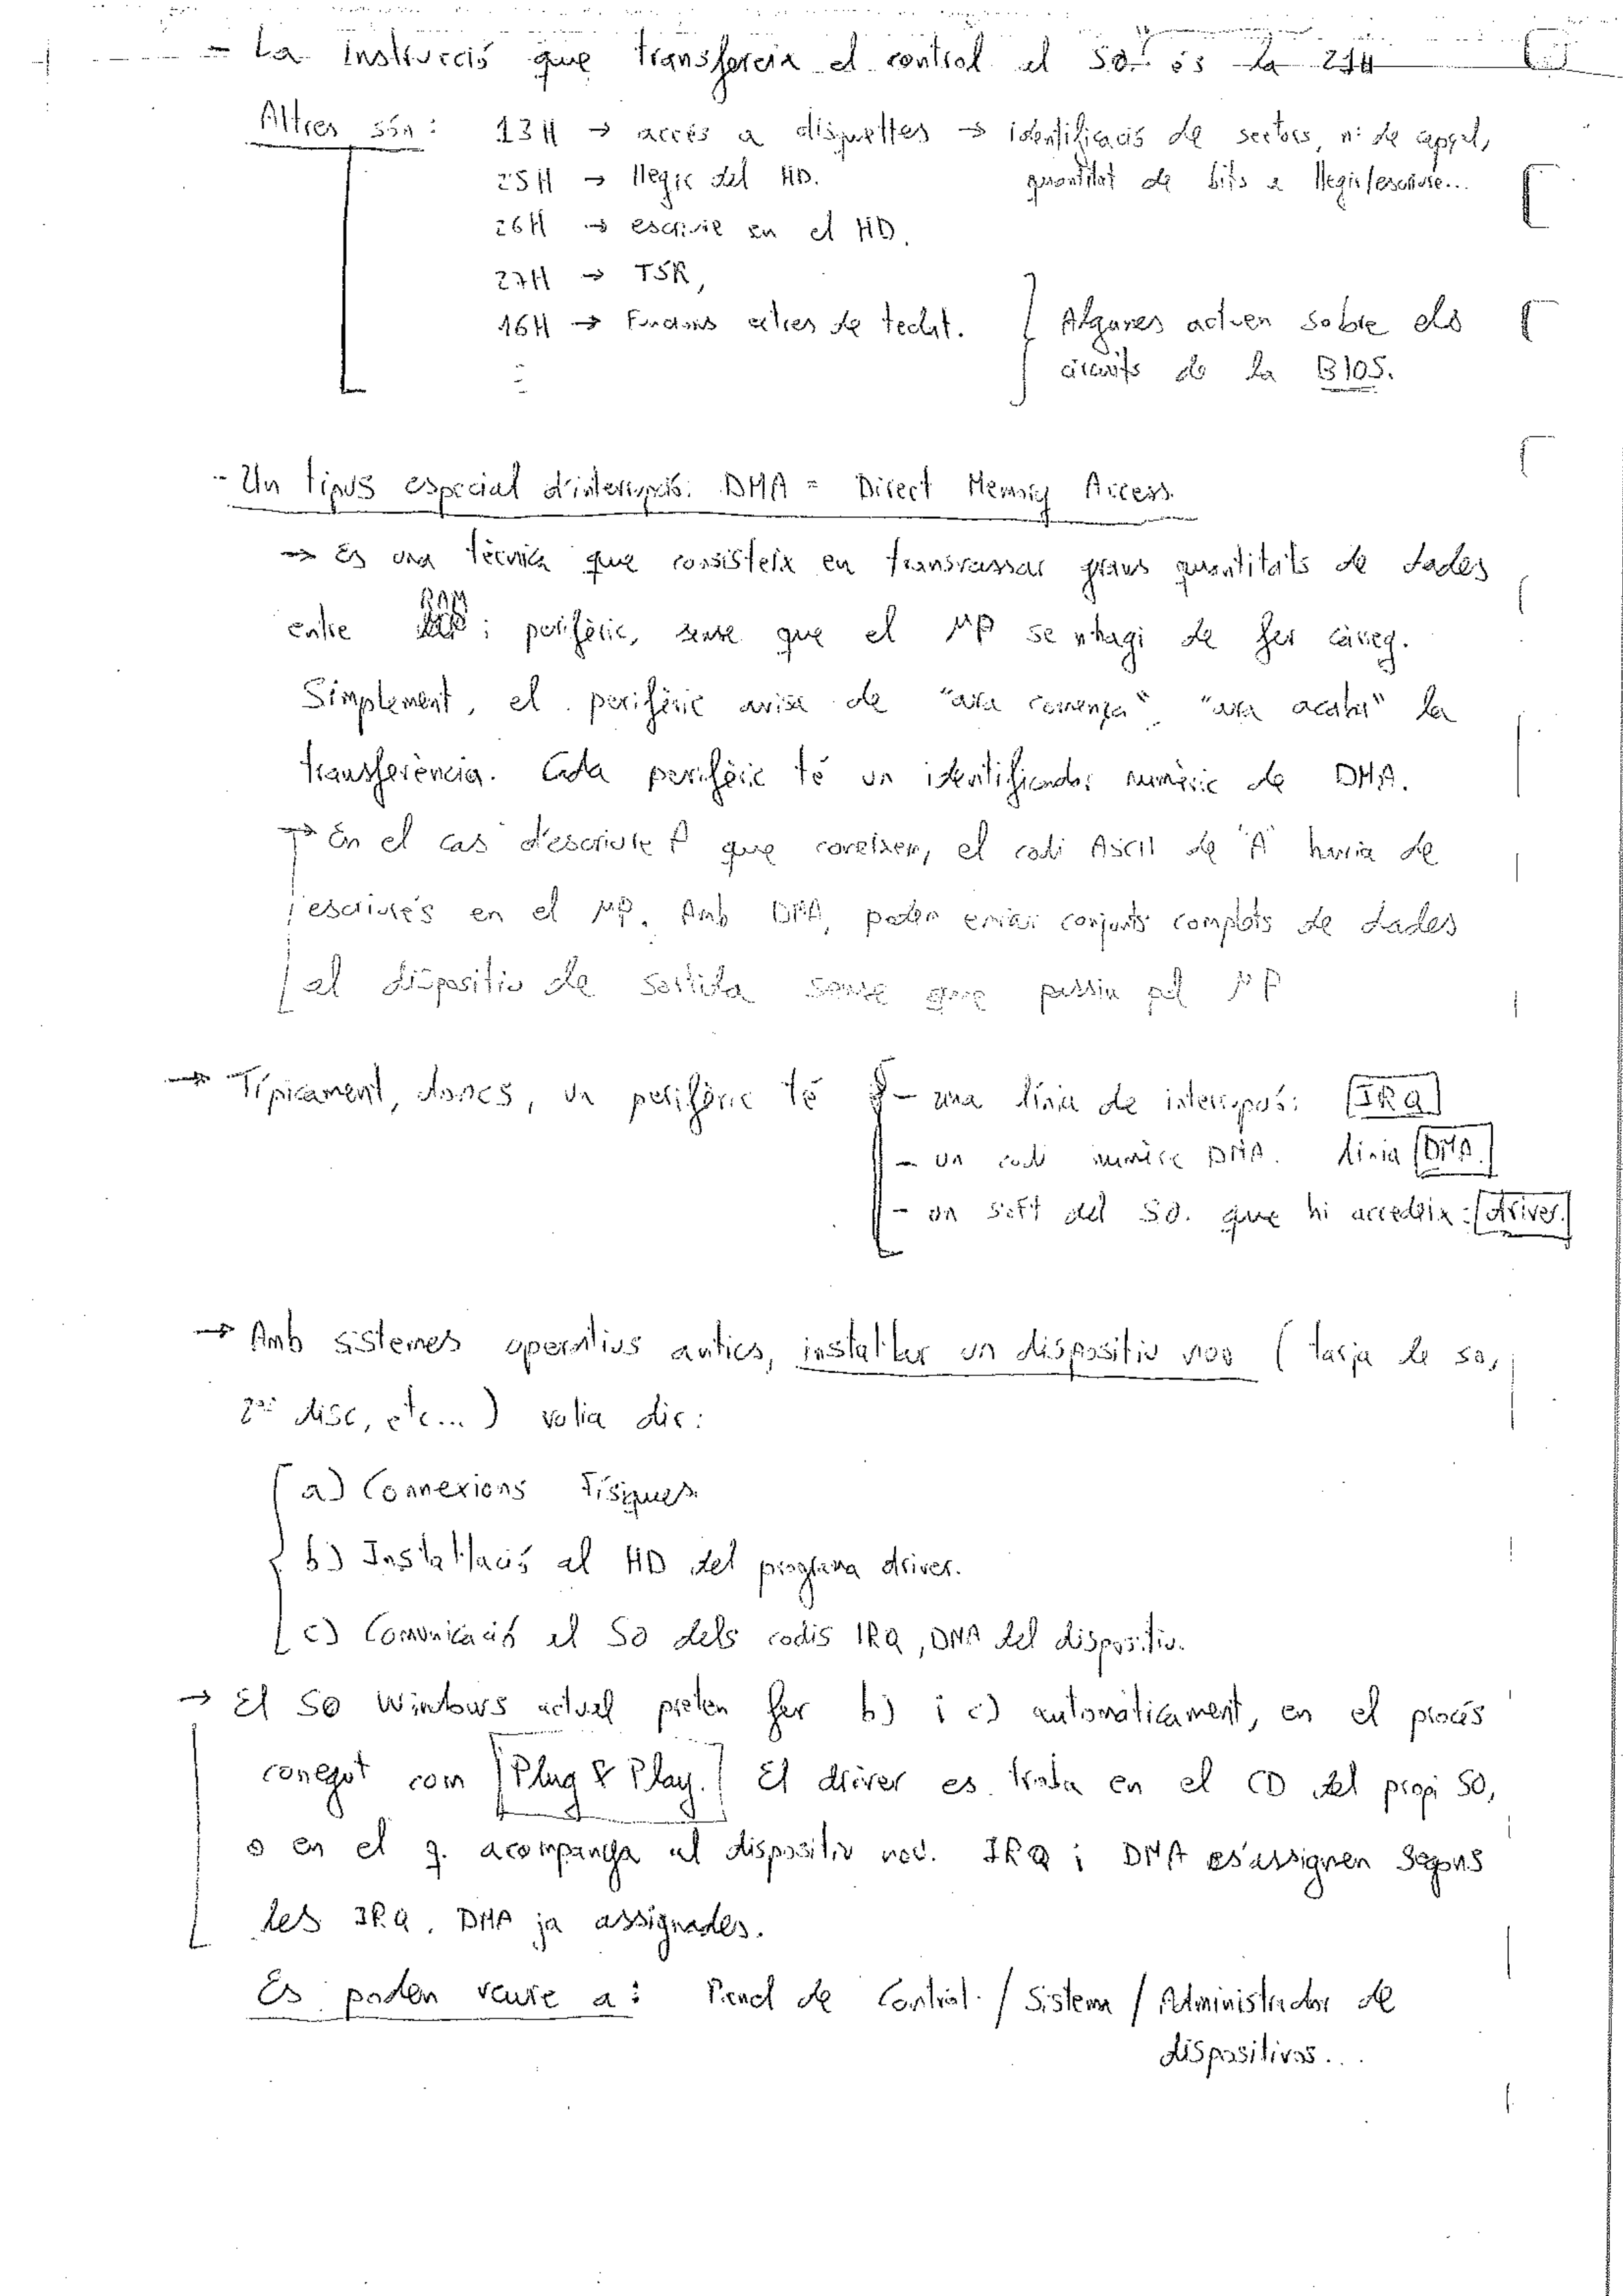 - La instrucció que transfereix el control al SO. és la 21H
Altres són: 13H → accés a disquettes → identificació de sectors, nº de capçal,
25H → llegir del HD. quantitat de bits a llegir/escriure...
26H → escriure en el HD.
27H → TSR,
16H → Funcions extres de teclat. Algunes actuen sobre els
circuits de la BIOS.
- Un tipus especial d'interrupció: DMA = Direct Memory Access.
→ És una tècnica que consisteix en transvassar grans quantitats de dades
RAM
entre i perifèric, sense que el μP se n'hagi de fer càrreg.
Simplement, el perifèric avisa de "ara comença" "ara acaba" la
transferència. Cada perifèric té un identificador numèric de DMA.
→ En el cas d'escriure A que coneixem, el codi ASCII de "A" havia de
escriure's en el μP. Amb DMA, poden enviar conjunts complets de dades
al dispositiu de sortida sense que passin pel μP
→ Típicament, doncs, un perifèric té - una línia de interrupció: IRQ
- un codi numèric DMA. línia DMA.
- un soft del SO. que hi accedeix: driver.
→ Amb sistemes operatius antics, instal·lar un dispositiu nou (tarja de so,
2on disc, etc...) volia dir:
a) Connexions físiques.
b) Instal·lació al HD del programa driver.
c) Comunicació al SO dels codis IRQ, DMA del dispositiu.
→ El SO Windows actual pretén fer b) i c) automàticament, en el procés
conegut com Plug & Play. El driver es troba en el CD del propi SO,
o en el q. acompanya al dispositiu nou. IRQ i DMA es assignen segons
les IRQ, DMA ja assignades.
Es poden veure a: Panel de Control / Sistema / Administrador de
dispositivos...